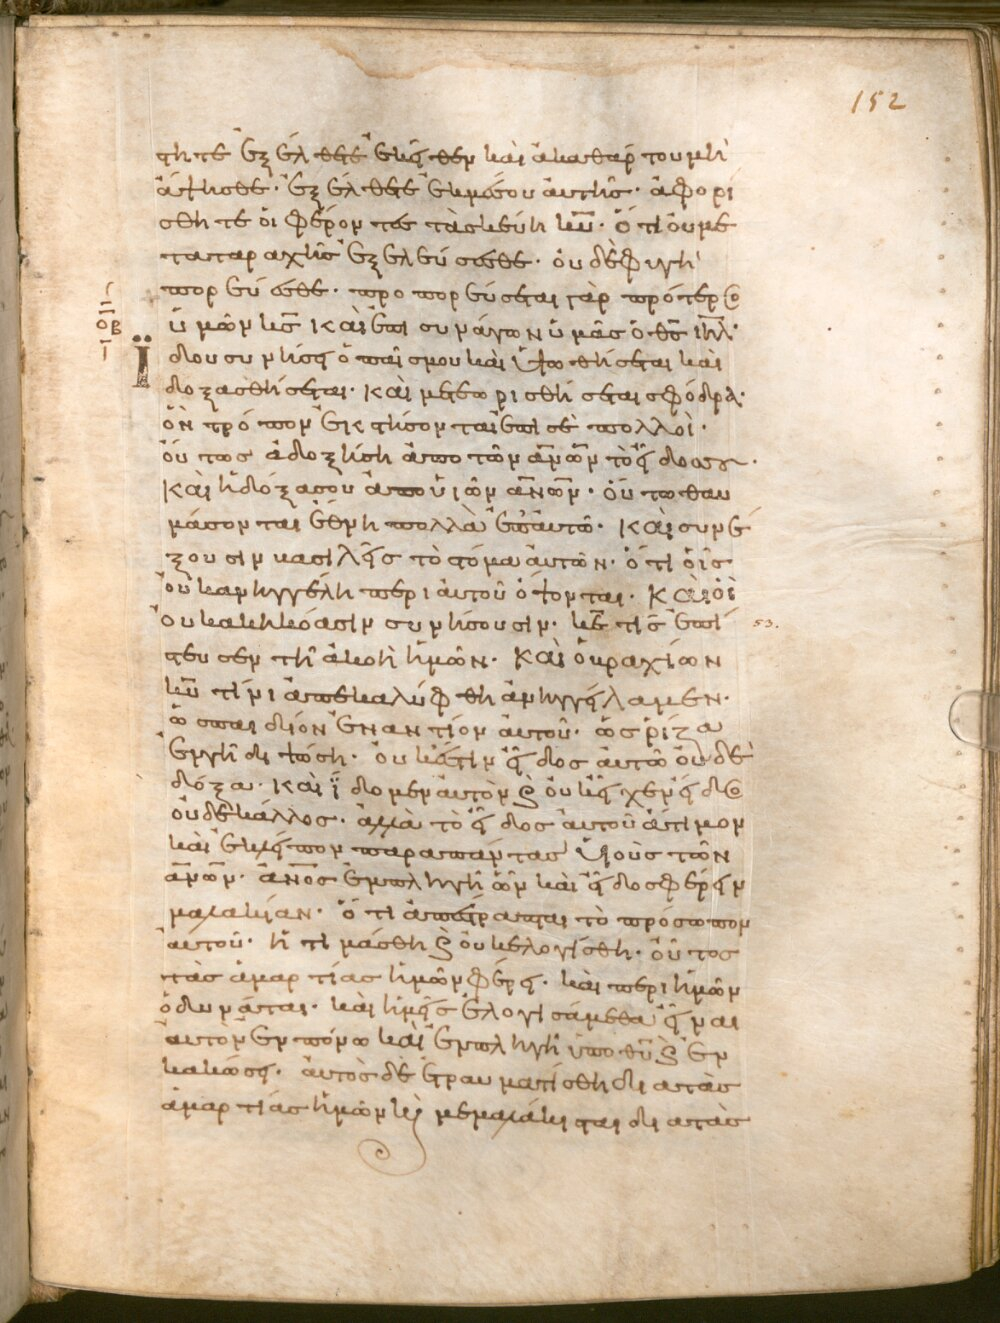 152
στητε ἐξέλθετε ἐκεῖθεν καὶ ἀκαθάρτου μὴ
ἅψησθε· ἐξέλθετε ἐκ μέσου αὐτῆς· ἀφορί
σθητε οἱ φέροντες τὰ σκεύη κ̅υ̅· ὅτι οὐ με
τα ταραχῆς ἐξελεύσεσθε· οὐδὲ φυγῆ
πορεύσεσθε· προπορεύσεται γὰρ πρότερος
ὑμῶν κ̅ς̅ καὶ ὁ ἐπισυνάγων ὑμᾶς ὁ θ̅ς̅ ι̅η̅λ̅·
οβ
Ἰδου συνήσει ὁ παῖς μου καὶ ὑψωθήσεται καὶ
δοξασθήσεται· καὶ μετεωρισθήσεται σφόδρα·
ὃν τρόπον ἐκστήσονται ἐπι σὲ πολλοὶ·
οὕτως ἀδοξήσῃ ἀπο τῶν α̅ν̅ω̅ν̅ τὸ εἶδος σου·
καὶ ἡ δόξα σου ἀπο υἱῶν α̅ν̅ω̅ν̅· οὕτω θαυ
μάσονται ἔθνη πολλὰ ἐπ αὐτῶ· καὶ συνέ
ξουσιν βασιλεῖς τὸ στόμα αὐτῶν· ὅτι οἷς
οὐκ ἀνηγγέλη περι αὐτοῦ ὄψονται· καὶ οἳ
ουκ ακηκόασιν συνήσουσιν· κ̅ε̅ τίς ἐπί
53.
στευσεν τῆ ἀκοῆ ἡμῶν· καὶ ὁ βραχίων
κ̅υ̅ τίνι ἀπεκαλύφθη ἀνηγγείλαμεν·
ὡς παιδίον ἐναντίον αὐτοῦ· ὡς ρίζα
ἐν γῆ διψώση· οὐκ ἔστιν εἶδος αὐτῶ οὐδὲ
δόξα· καὶ ἴδομεν αὐτὸν ϗ οὐκ εἶχεν εἶδος
οὐδὲ κάλλος· ἀλλὰ τὸ εἶδος αὐτοῦ ἄτιμον
καὶ ἐκλεῖπον παρα πάντας υἱοὺς τῶν
α̅ν̅ω̅ν̅· α̅ν̅ο̅ς̅ ἐν πληγῆ ὢν καὶ εἰδὸς φέρειν
μαλακίαν· ὅτι ἀπέστραπται τὸ πρόσωπον
αὐτοῦ· ἠτιμάσθη ϗ οὐκ ελογίσθη· οὗτος
τὰς ἁμαρτίας ἡμῶν φέρει· καὶ περι ἡμῶν
ὀδυνᾶται· καὶ ἡμεῖς ἐλογισάμεθα εἶναι
αὐτὸν ἐν πόνω καὶ ἐν πληγῆ ὑπο θ̅υ̅ ϗ ἐν
κακώσει· αὐτὸς δὲ ἐτραυματίσθη δια τὰς
ἁμαρτίας ἡμῶν καὶ μεμαλάκισται δια τὰς